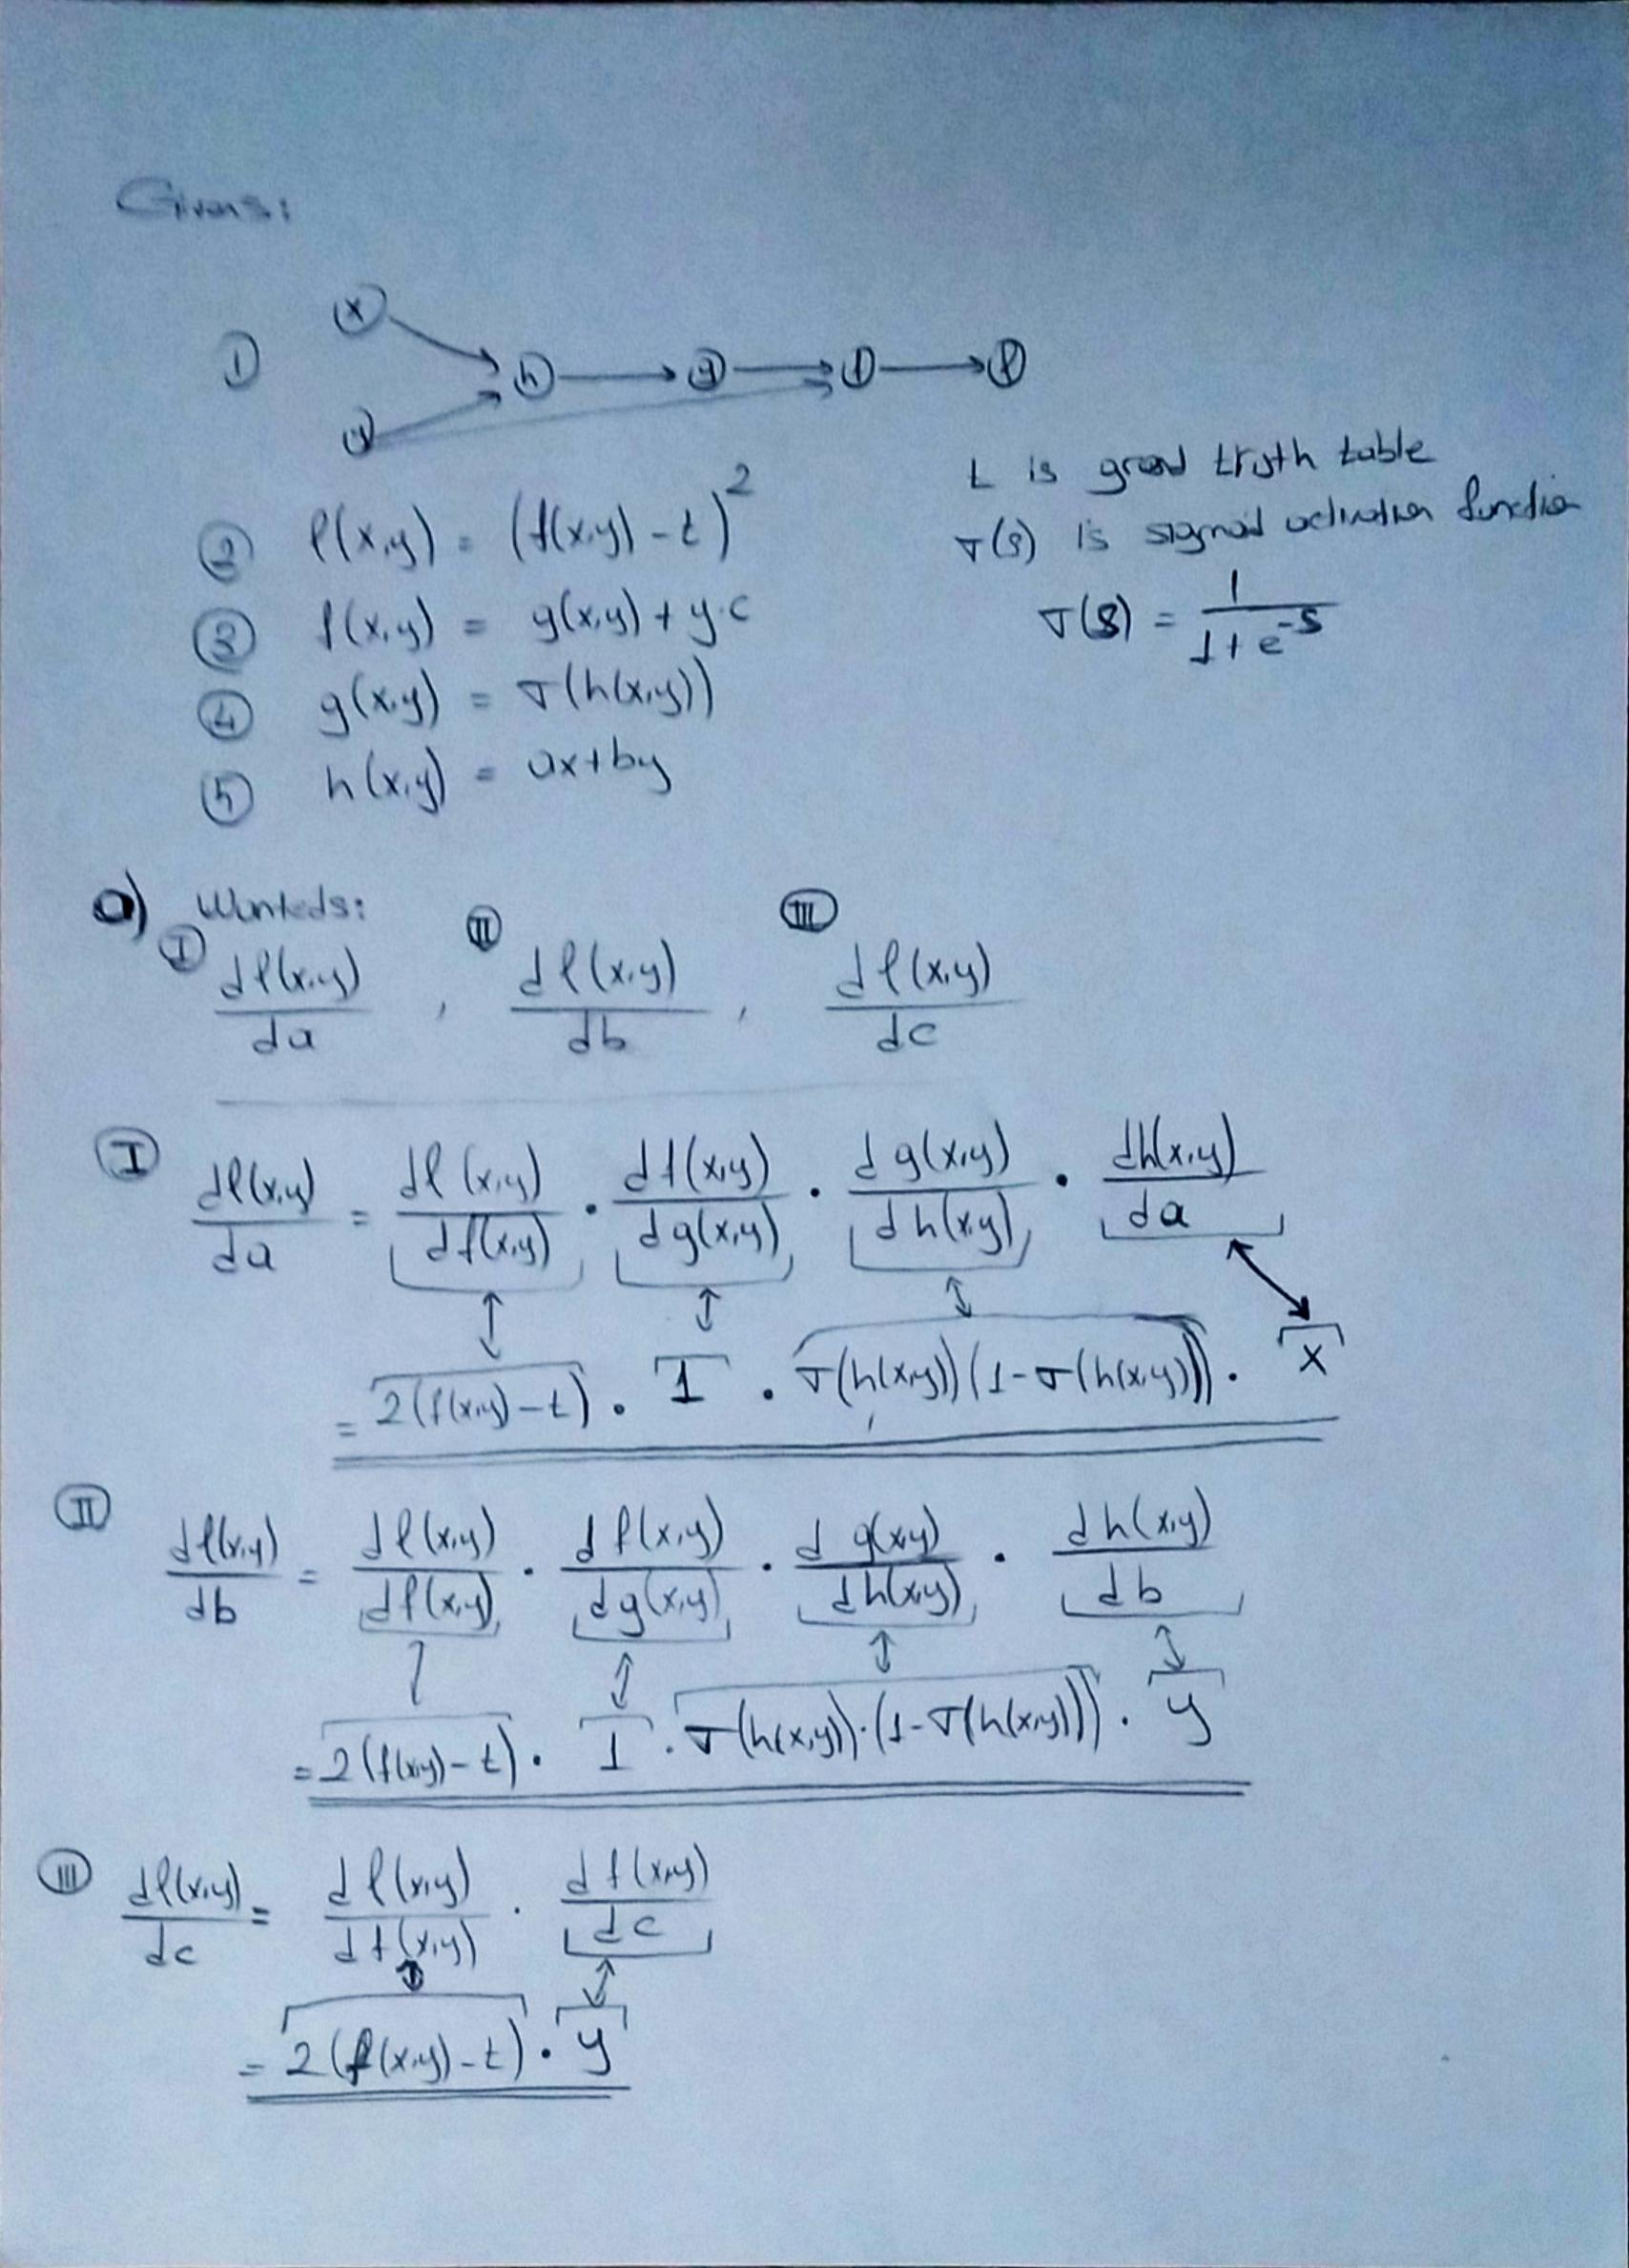 Givens:
① x y h g f ℓ
② ℓ(x,y) = (f(x,y) - t)²
t is groud truth table
σ(s) is sigmoid activation function
③ f(x,y) = g(x,y) + y·c
σ(s) = 1 / (1 + e^-s)
④ g(x,y) = σ(h(x,y))
⑤ h(x,y) = ax+by
a) Wanteds:
Ⓘ dℓ(x,y)/da , Ⅱ dℓ(x,y)/db , Ⅲ dℓ(x,y)/dc
Ⓘ dℓ(x,y)/da = dℓ(x,y)/df(x,y) · df(x,y)/dg(x,y) · dg(x,y)/dh(x,y) · dh(x,y)/da
= 2(f(x,y) - t) · 1 · σ(h(x,y))(1-σ(h(x,y))) · x
Ⅱ dℓ(x,y)/db = dℓ(x,y)/df(x,y) · df(x,y)/dg(x,y) · dg(x,y)/dh(x,y) · dh(x,y)/db
= 2(f(x,y) - t) · 1 · σ(h(x,y))·(1-σ(h(x,y))) · y
Ⅲ dℓ(x,y)/dc = dℓ(x,y)/df(x,y) · df(x,y)/dc
= 2(f(x,y) - t) · y